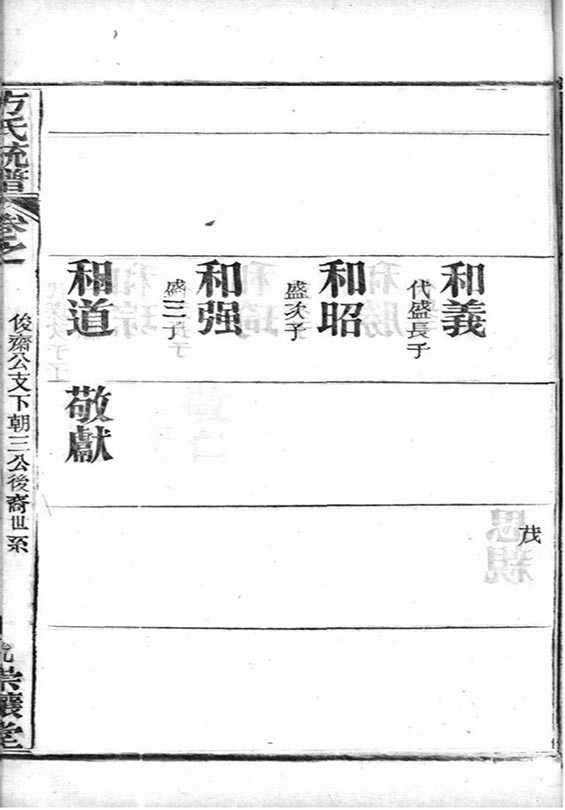 和義
代盛長子
和昭
盛次子
和强
盛三子
和道
敬獻
茂
方氏統譜
卷之
後齋公支下朝三公後裔世系
九